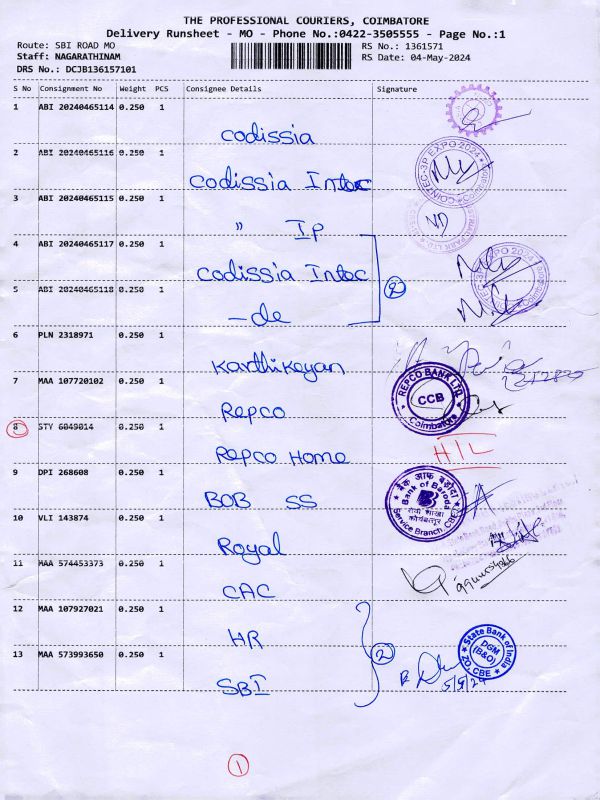 THE PROFESSIONAL COURIERS, COIMBATORE
Delivery Runsheet - MO - Phone No.:0422-3505555 - Page No.:1
Route: SBI ROAD MO RS No.: 1361571
Staff: NAGARATHINAM RS Date: 04-May-2024
DRS No.: DCJB136157101
S No Consignment No Weight PCS Consignee Details Signature
1 ABI 20240465114 0.250 1
codissia
2 ABI 20240465116 0.250 1
COINTEC-3P EXPO 2024
codissia Intec
3 ABI 20240465115 0.250 1
" IP
VD
4 ABI 20240465117 0.250 1
codissia Intec
2
5 ABI 20240465118 0.250 1
-de
6 PLN 2318971 0.250 1
Karthikeyan
7 MAA 107720102 0.250 1
Repco
REPCO BANK LTD
CCB
Coimbatore
8 STY 6049014 0.250 1
Repco Home
HIL
9 DPI 268608 0.250 1
BOB SS
बैंक आफ बड़ौदा
Bank of Baroda
Service Branch, CBE
10 VLI 143874 0.250 1
Royal
11 MAA 574453373 0.250 1
CAC
12 MAA 107927021 0.250 1
HR
2
State Bank of India
DGM
(B&O)
ZO, CBE
13 MAA 573993650 0.250 1
SBI
5/5/24
1